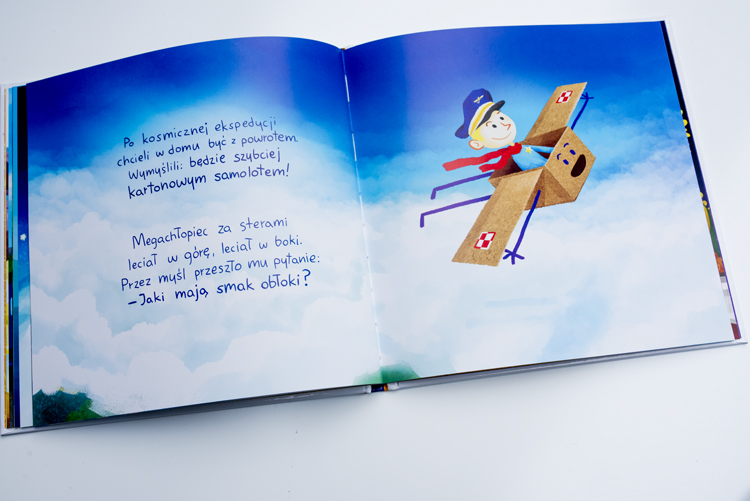 Po kosmicznej ekspedycji
chcieli w domu być z powrotem.
Wymyślili: będzie szybciej
kartonowym samolotem!
Megachłopiec za sterami
leciał w górę, leciał w boki.
Przez myśl przeszło mu pytanie:
– Jaki mają smak obłoki?